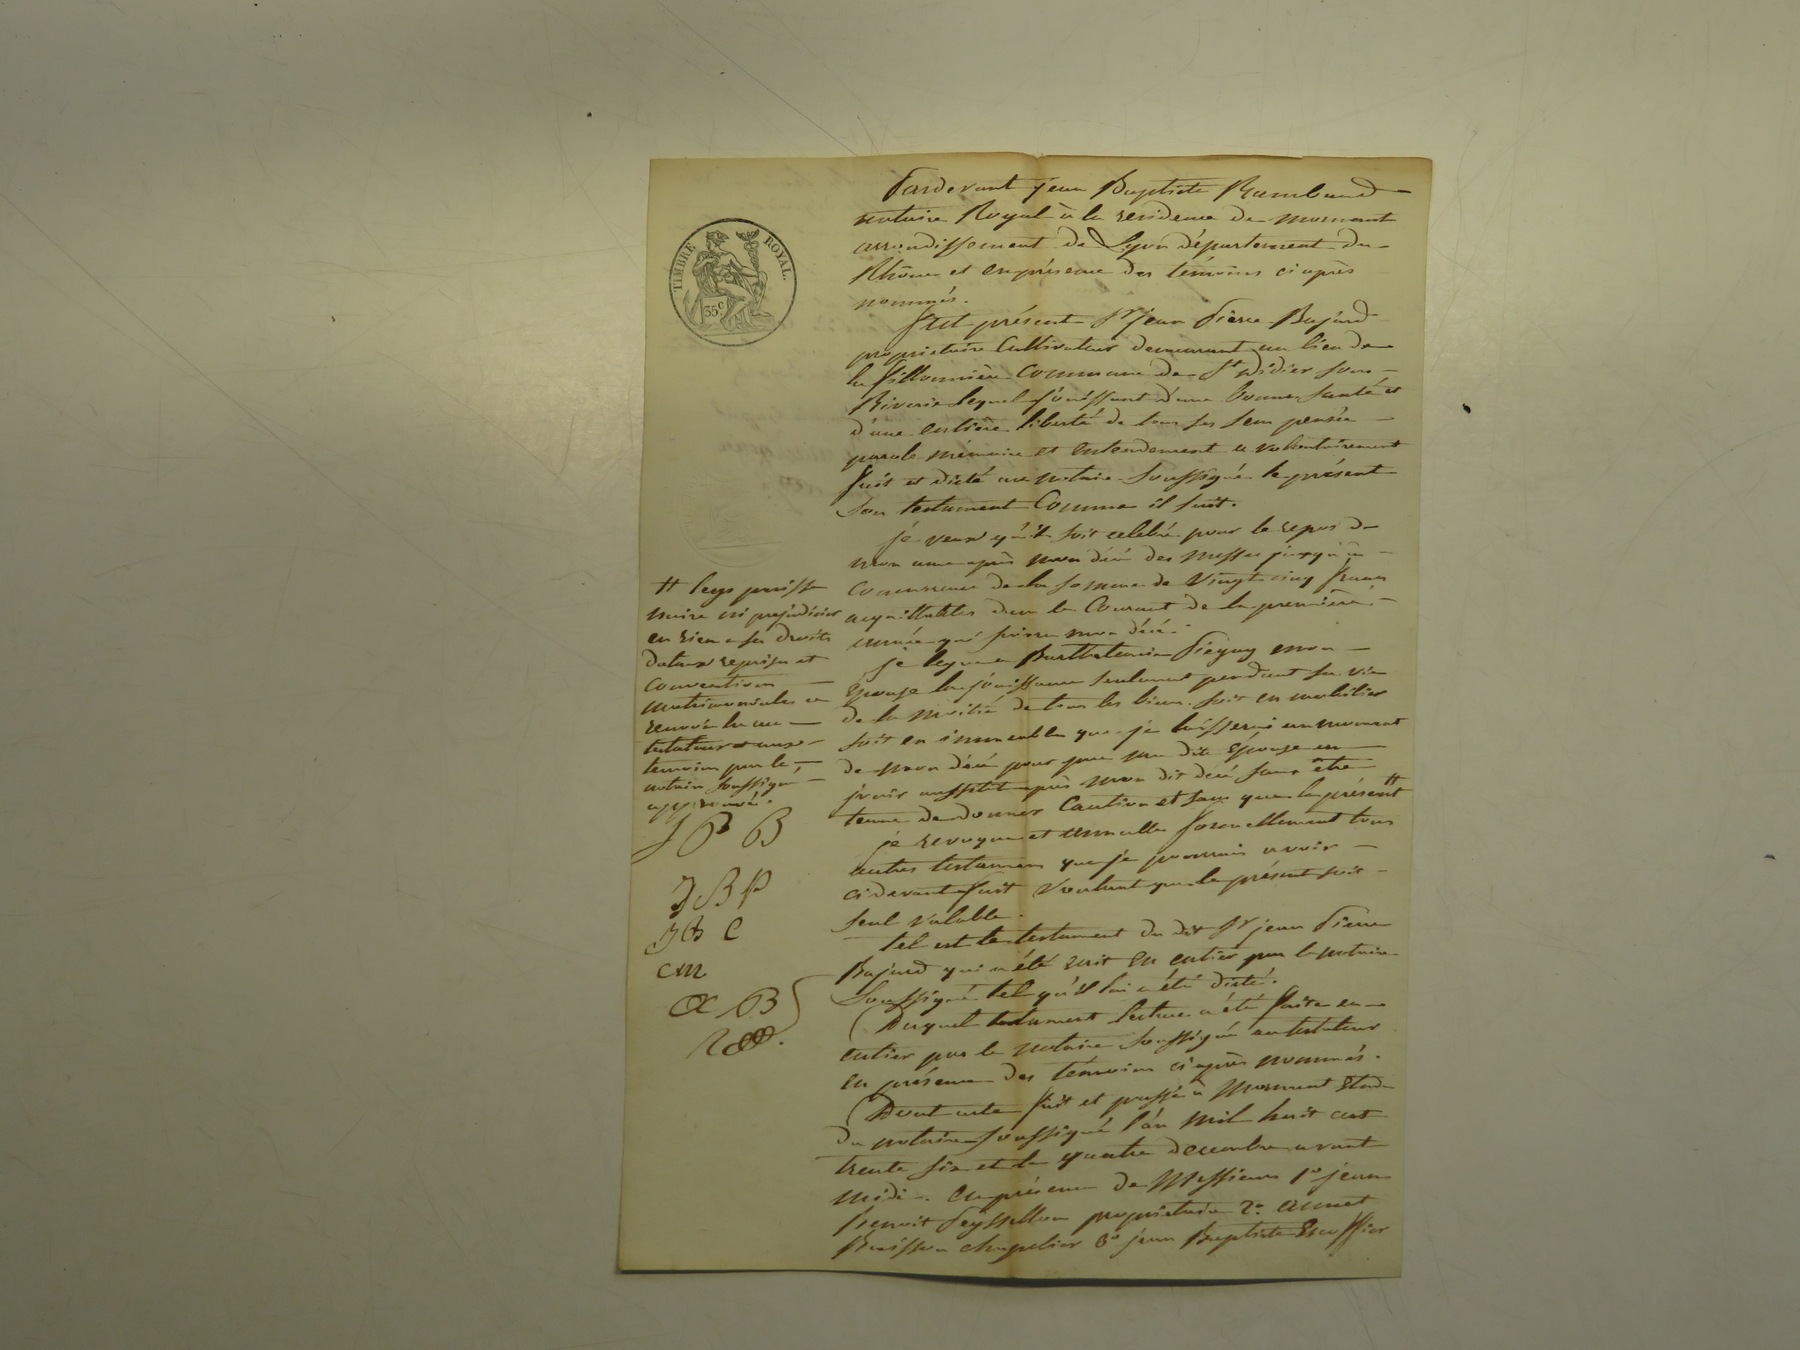 TIMBRE ROYAL.
35c
Pardevant jean Baptiste Rambaud
notaire Royal à la residence de mornant
arrondissement de Lyon département du
Rhône et en présence des témoins ci après
nommés.
fut présent Sr jean Pierre Bajard
proprietaire Cultivateur demeurant au lieu de
la fillonnière Commune de St Didier sous
Riverie lequel jouissant d'une bonne santé et
d'une entière liberté de tous ses sens pensée
parole mémoire et entendement a volontairement
fait et dicté au notaire soussigné le présent
son testament Comme il suit.
je veux qu'il soit celebré pour le repos de
mon ame après mon décé des messes jusqu'à
concurrence de la somme de Vingt cinq francs
acquittables dans le Courant de la première
année qui suivra mon décé.
je legue a Barthelemie Pieguay mon
Epouse la jouissance seulement pendant sa vie
de la moitié de tous les biens soit en mobilier
soit en immeubles que je laisserai au moment
de mon décé pour par ma dite Epouse en
jouir aussitot après mon dit décé sans être
tenue de donner Caution et sans que le présent #
je revoque et annulle formellement tous
autres testamens que je pourrais avoir
ci devant fait Voulant que le présent soit
seul valable.
tel est le testament du dit Sr jean Pierre
Bajard qui a été ecrit en entier par le notaire
soussigné tel qu'il lui a été dicté.
Duquel testament lecture a été faite en
entier par le notaire soussigné au testateur
en présence des témoins ci après nommés.
Dont acte fait et passé à Mornant Etude
du notaire soussigné l'an mil huit cent
trente six et le quatre decembre avant
midi. en présence de Messieurs 1o jean
benoit Peyssellon proprietaire 2o annet
Buisson chapelier 3o jean Baptiste Escoffier
# legs puisse
nuire ni prejudicier
en rien a ses droits
dotaux reprises et
Conventions
matrimoniales ce
renvoi lu au
testateur et aux
temoins par le
notaire soussigné
approuvé.
J P B
J B P
J B C
CM
a B